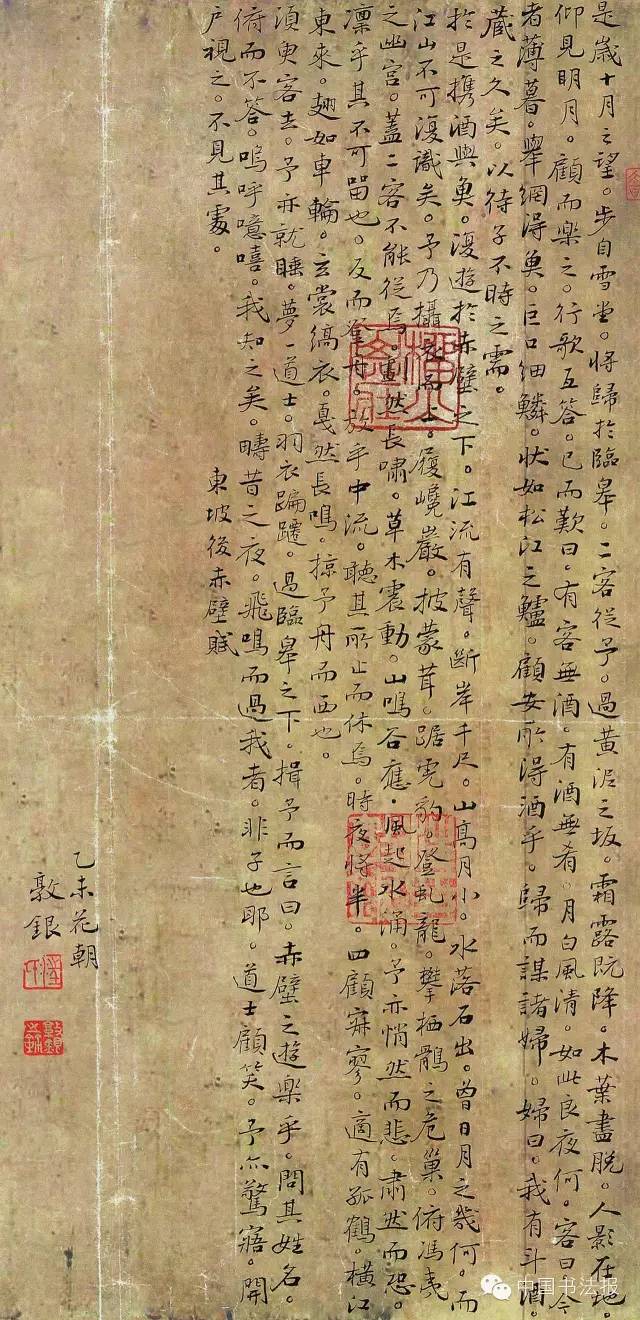 是歲十月之望。步自雪堂。將歸於臨皋。二客從予。過黃泥之坂。霜露既降。木葉盡脫。人影在地。
仰見明月。顧而樂之。行歌互答。已而歎曰。有客無酒。有酒無肴。月白風清。如此良夜何。客曰今
者薄暮。舉網得魚。巨口細鱗。狀如松江之鱸。顧安所得酒乎。歸而謀諸婦。婦曰。我有斗酒。
藏之久矣。以待子不時之需。
於是携酒與魚。復遊於赤壁之下。江流有聲。斷岸千尺。山高月小。水落石出。曾日月之幾何。而
江山不可復識矣。予乃攝衣而上。履巉巖。披蒙茸。踞虎豹。登虬龍。攀栖鶻之危巢。俯馮夷
之幽宮。蓋二客不能從焉。劃然長嘯。草木震動。山鳴谷應。風起水涌。予亦悄然而悲。肅然而恐。
凜乎其不可畱也。反而登舟。放乎中流。聽其所止而休焉。時夜將半。四顧寂寥。適有孤鶴。橫江
東來。翅如車輪。玄裳縞衣。戛然長鳴。掠予舟而西也。
須臾客去。予亦就睡。夢一道士。羽衣蹁躚。過臨皋之下。揖予而言曰。赤壁之遊樂乎。問其姓名。
俯而不答。嗚呼噫嘻。我知之矣。疇昔之夜。飛鳴而過我者。非子也耶。道士顧笑。予亦驚寤。開
户視之。不見其處。
東坡後赤壁賦
乙未花朝
敦銀
中国书法报